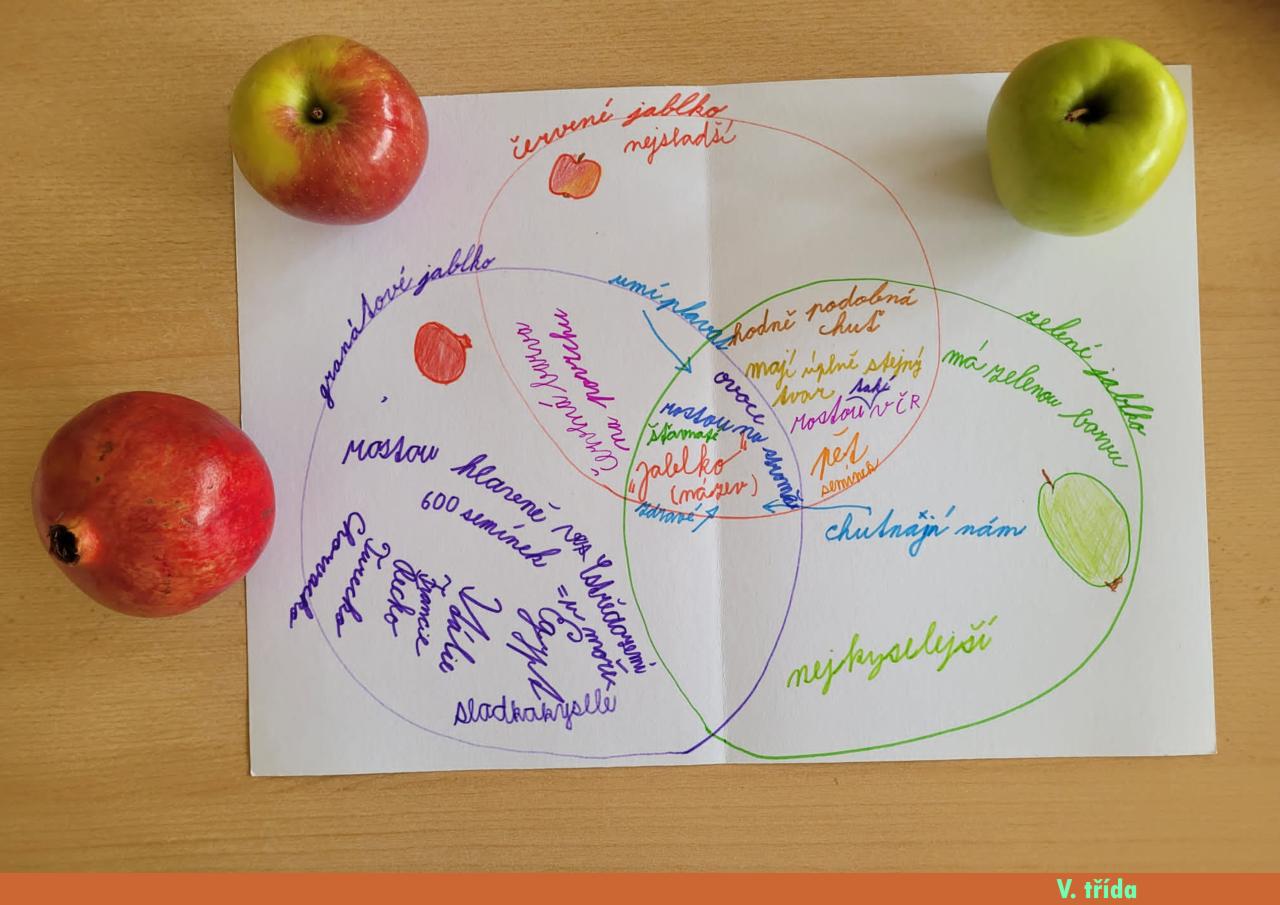 červené jablko
nejsladší
granátové jablko
umí plavat
hodně podobná
chuť
zelené jablko
má zelenou barvu
mají úplně stejný
tvar
také
rostou v ČR
pět
semínek
červená barva
na povrchu
ovoce
rostou na stromě
šťavnaté
"Jablko"
(název)
zdravé
chutnají nám
rostou hlavně v
Středozemí
= v moře
600 semínek
Chorvatsko
Turecko
Řecko
Francie
Itálie
Egypt
sladkakyslé
nejkyselejší
V. třída